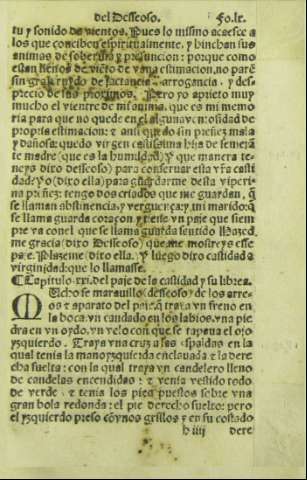 del Desseoso. Fo.lx.
tu y sonido de vientos. Pues lo mismo acaesce a
los que conciben espiritualmente, y hinchan sus
animas de soberuia y presuncion: porque como
estan llenos de viẽto de vana estimacion, no parẽ
sin gran ruydo de jactancia arrogancia, y des-
precio de sus proximos. Pero yo aprieto muy
mucho el vientre de mi anima, que es mi memo
ria para que no quede en el alguna ventosidad de
propria estimacion: z ansi quedo sin preñez mala
y dañosa: quedo virgen castissima hija de semejan
te madre (que es la humildad) Y que manera te-
neys (dixo desseoso) para conseruar esta vr̃a casti
dad: Yo (dixo ella) para guardarme desta viperi-
na preñez: tengo dos criados que me guardan, q̃
se llaman abstinencia, y verguença: y mi marido: q̃
se llama guarda coraçon y tiene vn paje que siem
pre va con el que se llama guarda sentido Hazed
me gracia (dixo Desseoso) que me mostreys esse
paje. Plazeme (dixo ella.) Y luego dixo castidad a
virginidad: que lo llamasse.
¶ Capitulo. xxi. del paje de la castidad y su librea.
Mucho se marauillo desseoso: de los arre-
os z aparato del paje: q̃ traya vn freno en
la boca. vn candado en los labios. vna pie
dra en vn oydo. vn velo con que se tapaua el ojo
yzquierdo. Traya vna cruz a las espaldas en la
qual tenia la mano yzquierda enclauada z la dere
cha suelta: con la qual traya vn candelero lleno
de candelas encendidas: z venia vestido todo
de verde. z tenia los pies puestos sobre vna
gran bola redonda: el pie derecho suelto: pero
el yzquierdo preso cõ vnos grillos y en su costado
h iiij dere